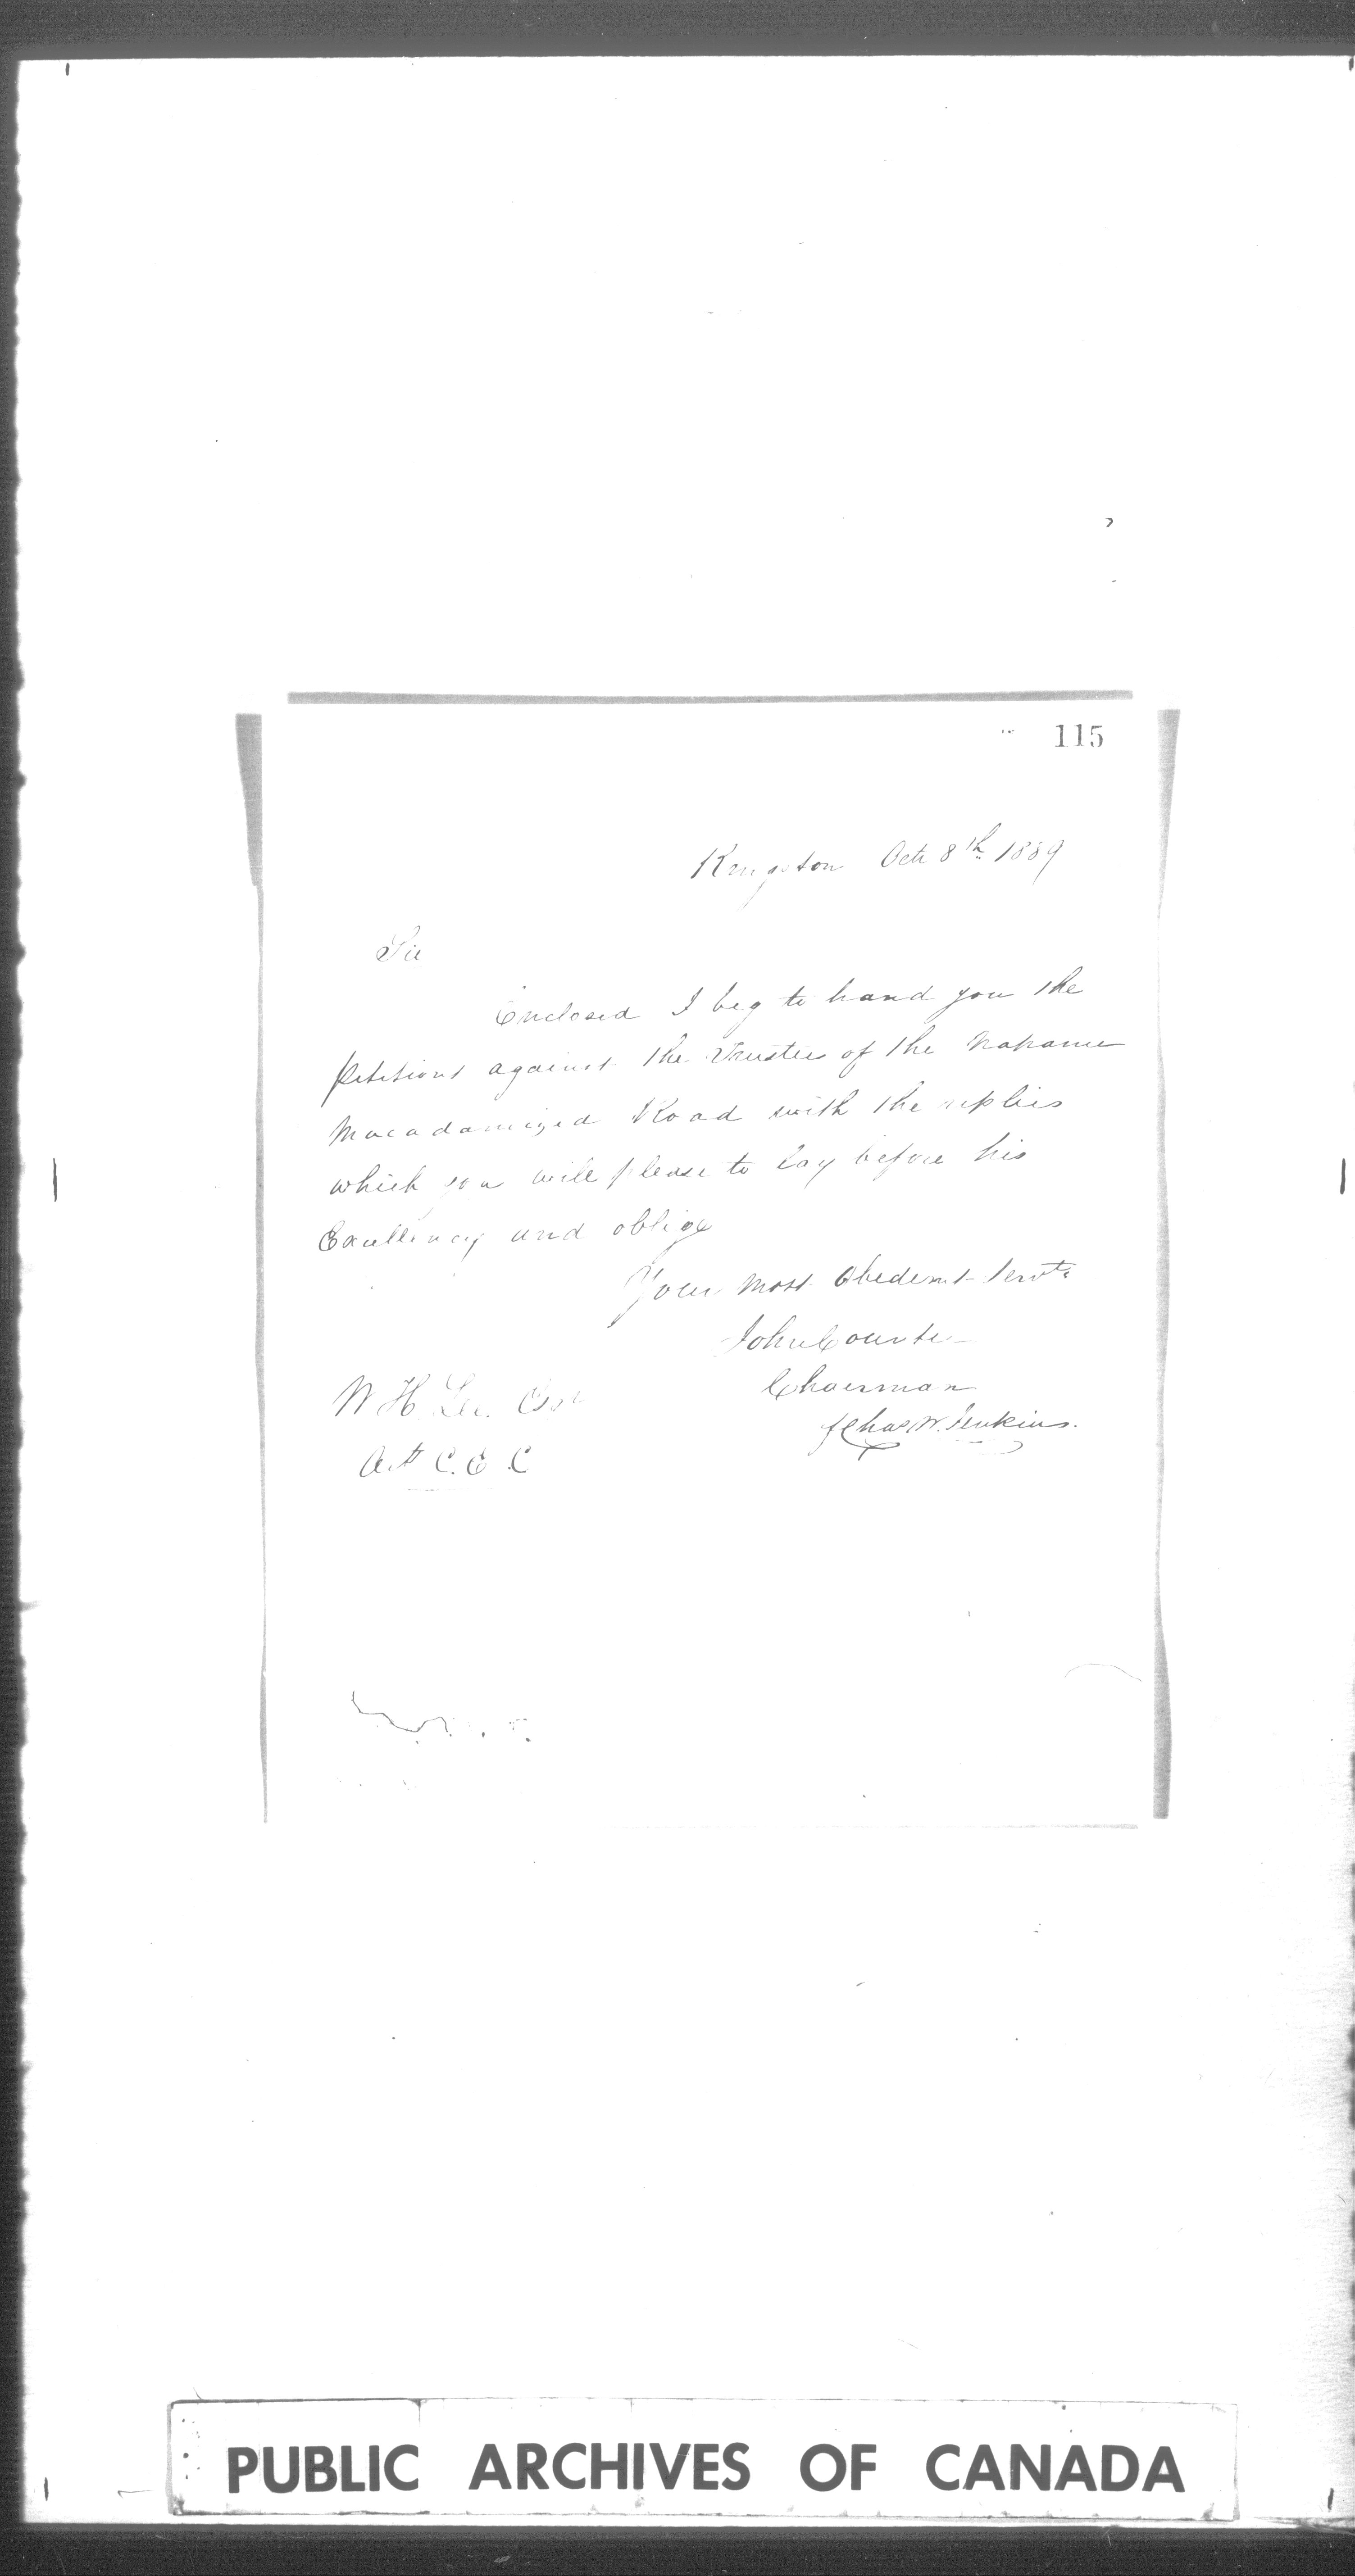 115
Kingston Octr 8th 1839
Sir
Enclosed I beg to hand you the
Petitions against the Trustees of the Napanee
Macadamized Road with the replies
which you will please to lay before his
Excellency and oblige
Your most Obedient Servt
John Counter
Chairman
Chas W. Jenkins.
W H Lee Esqr
Act C. E. C
PUBLIC ARCHIVES OF CANADA